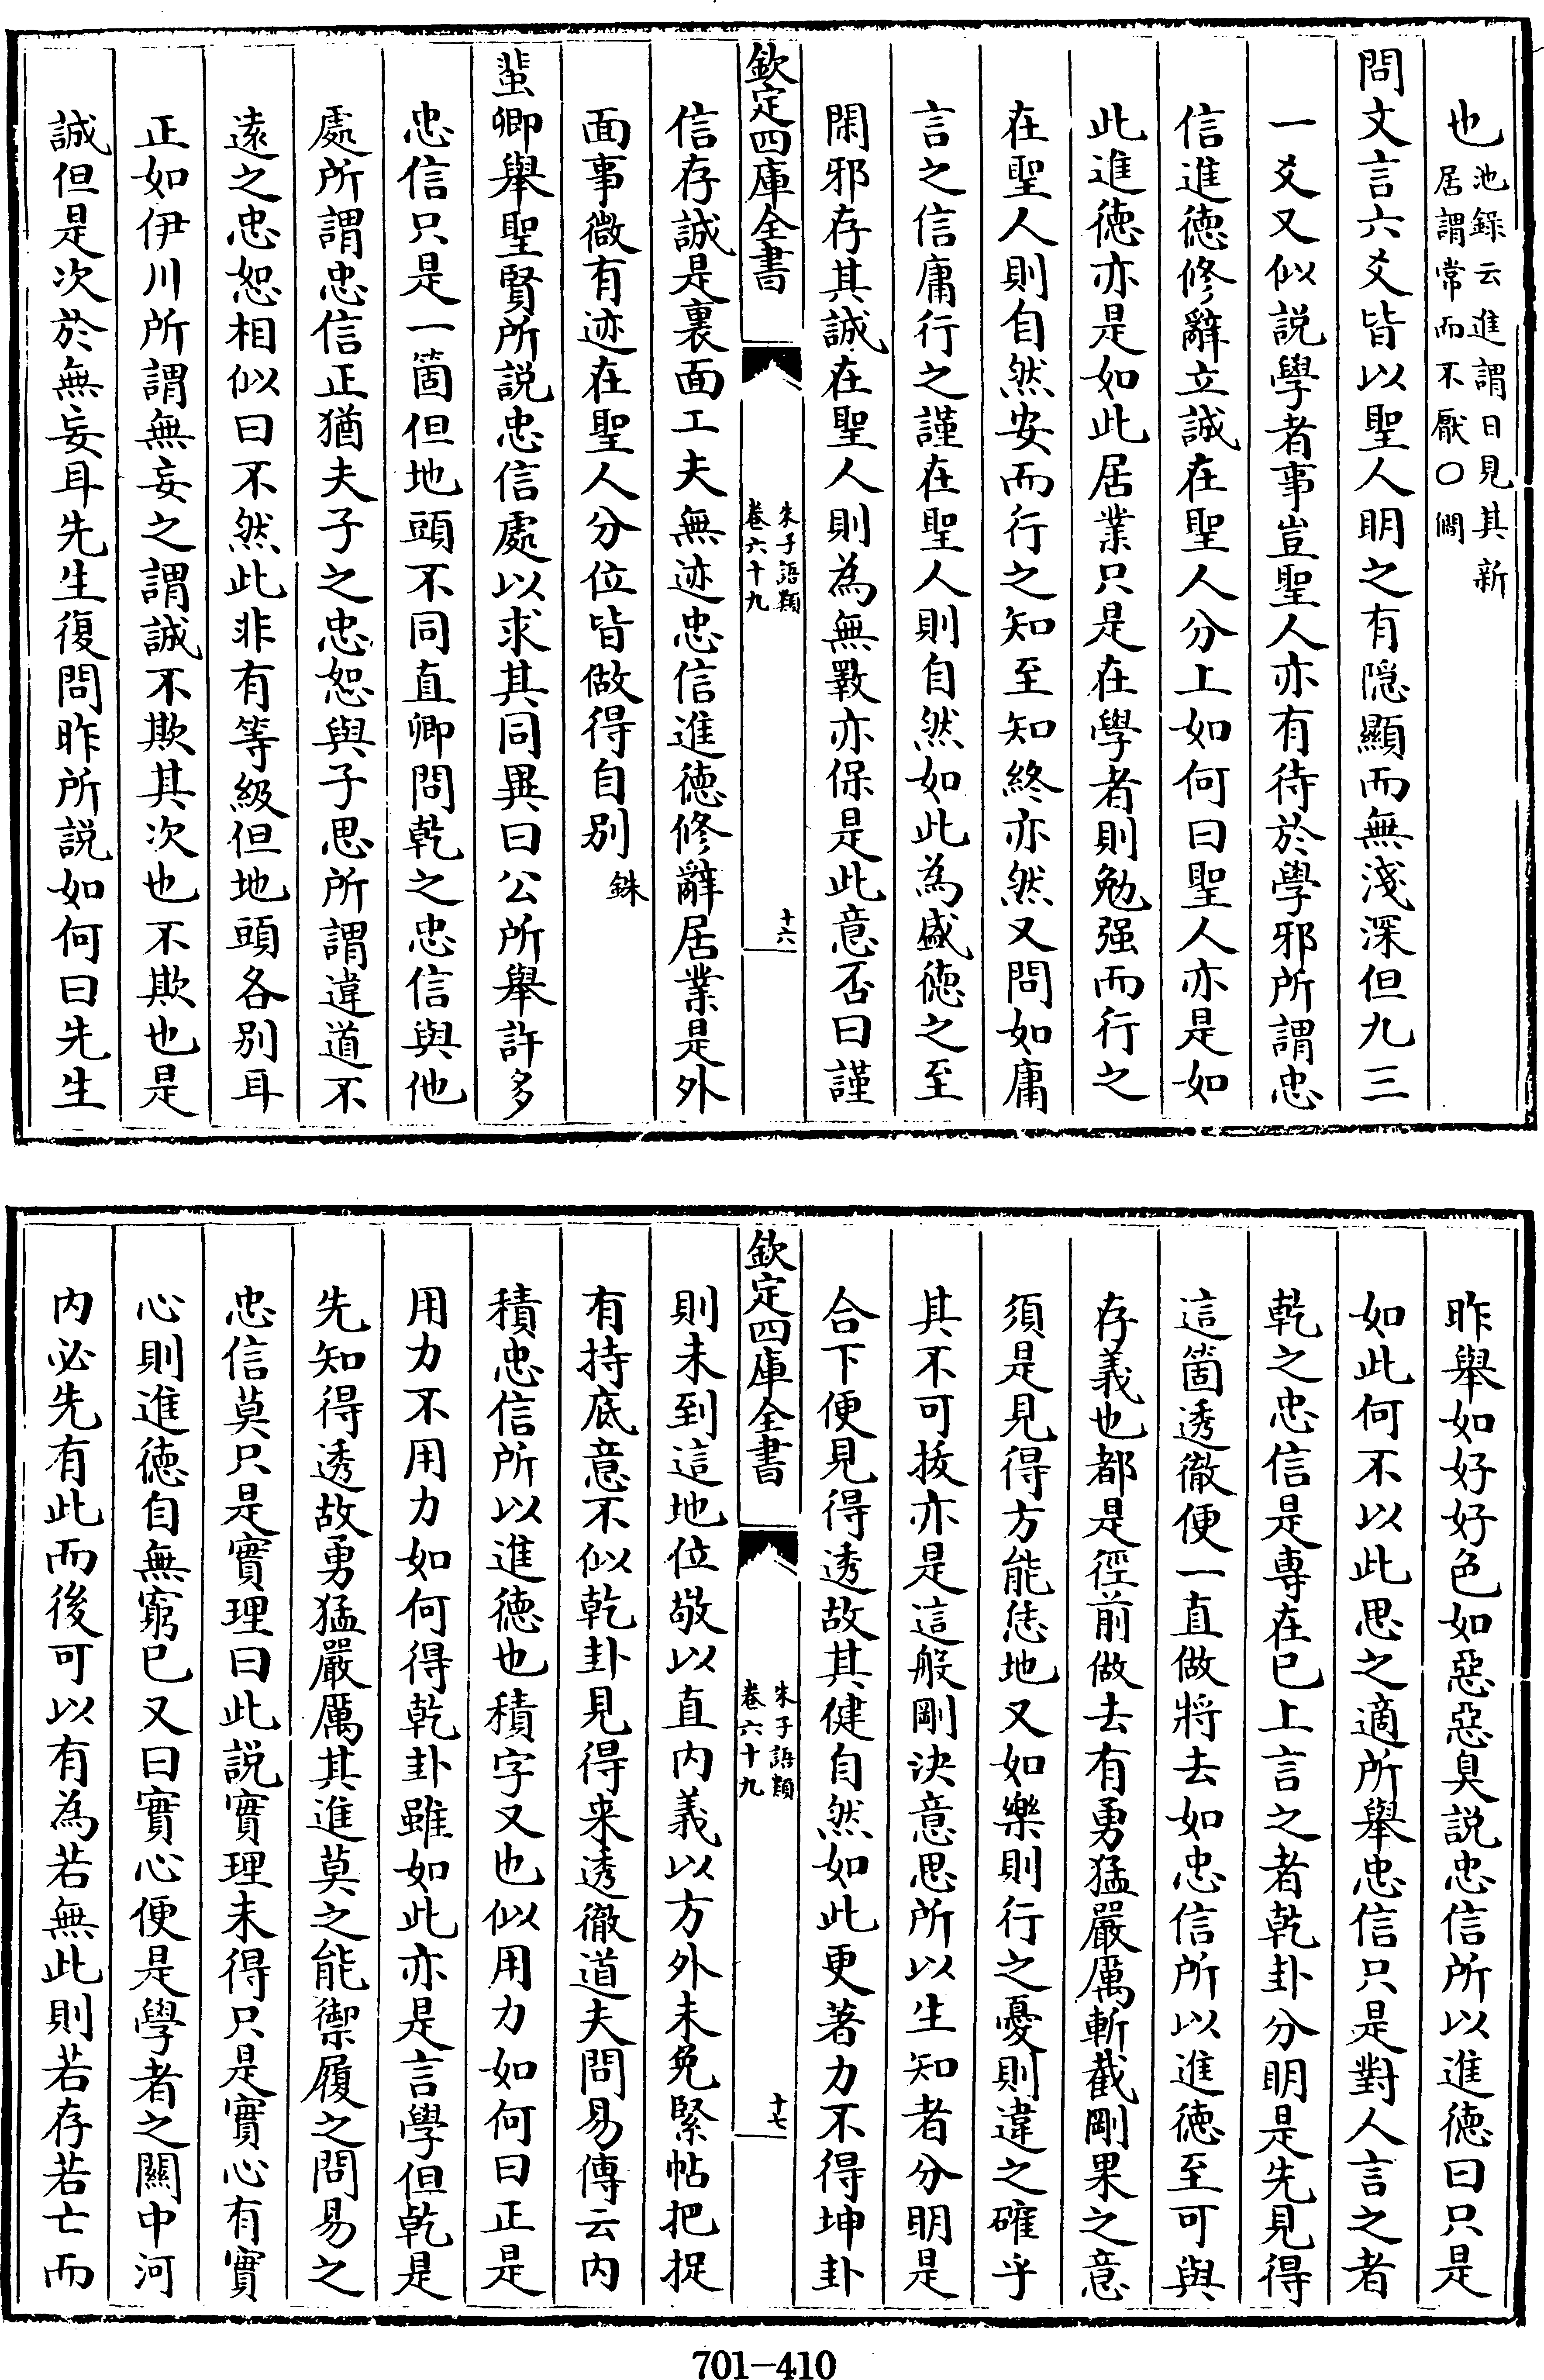 也池錄云進謂日見其新居謂常而不厭〇僩
問文言六爻皆以聖人明之有隠顯而無淺深但九三
一爻又似説學者事豈聖人亦有待於學邪所謂忠
信進徳修辭立誠在聖人分上如何曰聖人亦是如
此進徳亦是如此居業只是在學者則勉强而行之
在聖人則自然安而行之知至知終亦然又問如庸
言之信庸行之謹在聖人則自然如此為盛徳之至
閑邪存其誠在聖人則為無斁亦保是此意否曰謹
欽定四庫全書
朱子語類
卷六十九
十六
信存誠是裏面工夫無迹忠信進徳修辭居業是外
面事微有迹在聖人分位皆做得自别銖
蜚卿舉聖賢所説忠信處以求其同異曰公所舉許多
忠信只是一箇但地頭不同直卿問乾之忠信與他
處所謂忠信正猶夫子之忠恕與子思所謂違道不
遠之忠恕相似曰不然此非有等級但地頭各别耳
正如伊川所謂無妄之謂誠不欺其次也不欺也是
誠但是次於無妄耳先生復問昨所説如何曰先生
昨舉如好好色如惡惡臭説忠信所以進徳曰只是
如此何不以此思之適所舉忠信只是對人言之者
乾之忠信是専在已上言之者乾卦分明是先見得
這箇透徹便一直做將去如忠信所以進徳至可與
存義也都是徑前做去有勇猛嚴厲斬截剛果之意
須是見得方能恁地又如樂則行之憂則違之確乎
其不可拔亦是這般剛決意思所以生知者分明是
合下便見得透故其健自然如此更著力不得坤卦
欽定四庫全書
朱子語類
卷六十九
十七
則未到這地位敬以直内義以方外未免緊帖把捉
有持底意不似乾卦見得来透徹道夫問易傳云内
積忠信所以進徳也積字又也似用力如何曰正是
用力不用力如何得乾卦雖如此亦是言學但乾是
先知得透故勇猛嚴厲其進莫之能禦履之問易之
忠信莫只是實理曰此説實理未得只是實心有實
心則進徳自無窮已又曰實心便是學者之關中河
内必先有此而後可以有為若無此則若存若亡而
701-410